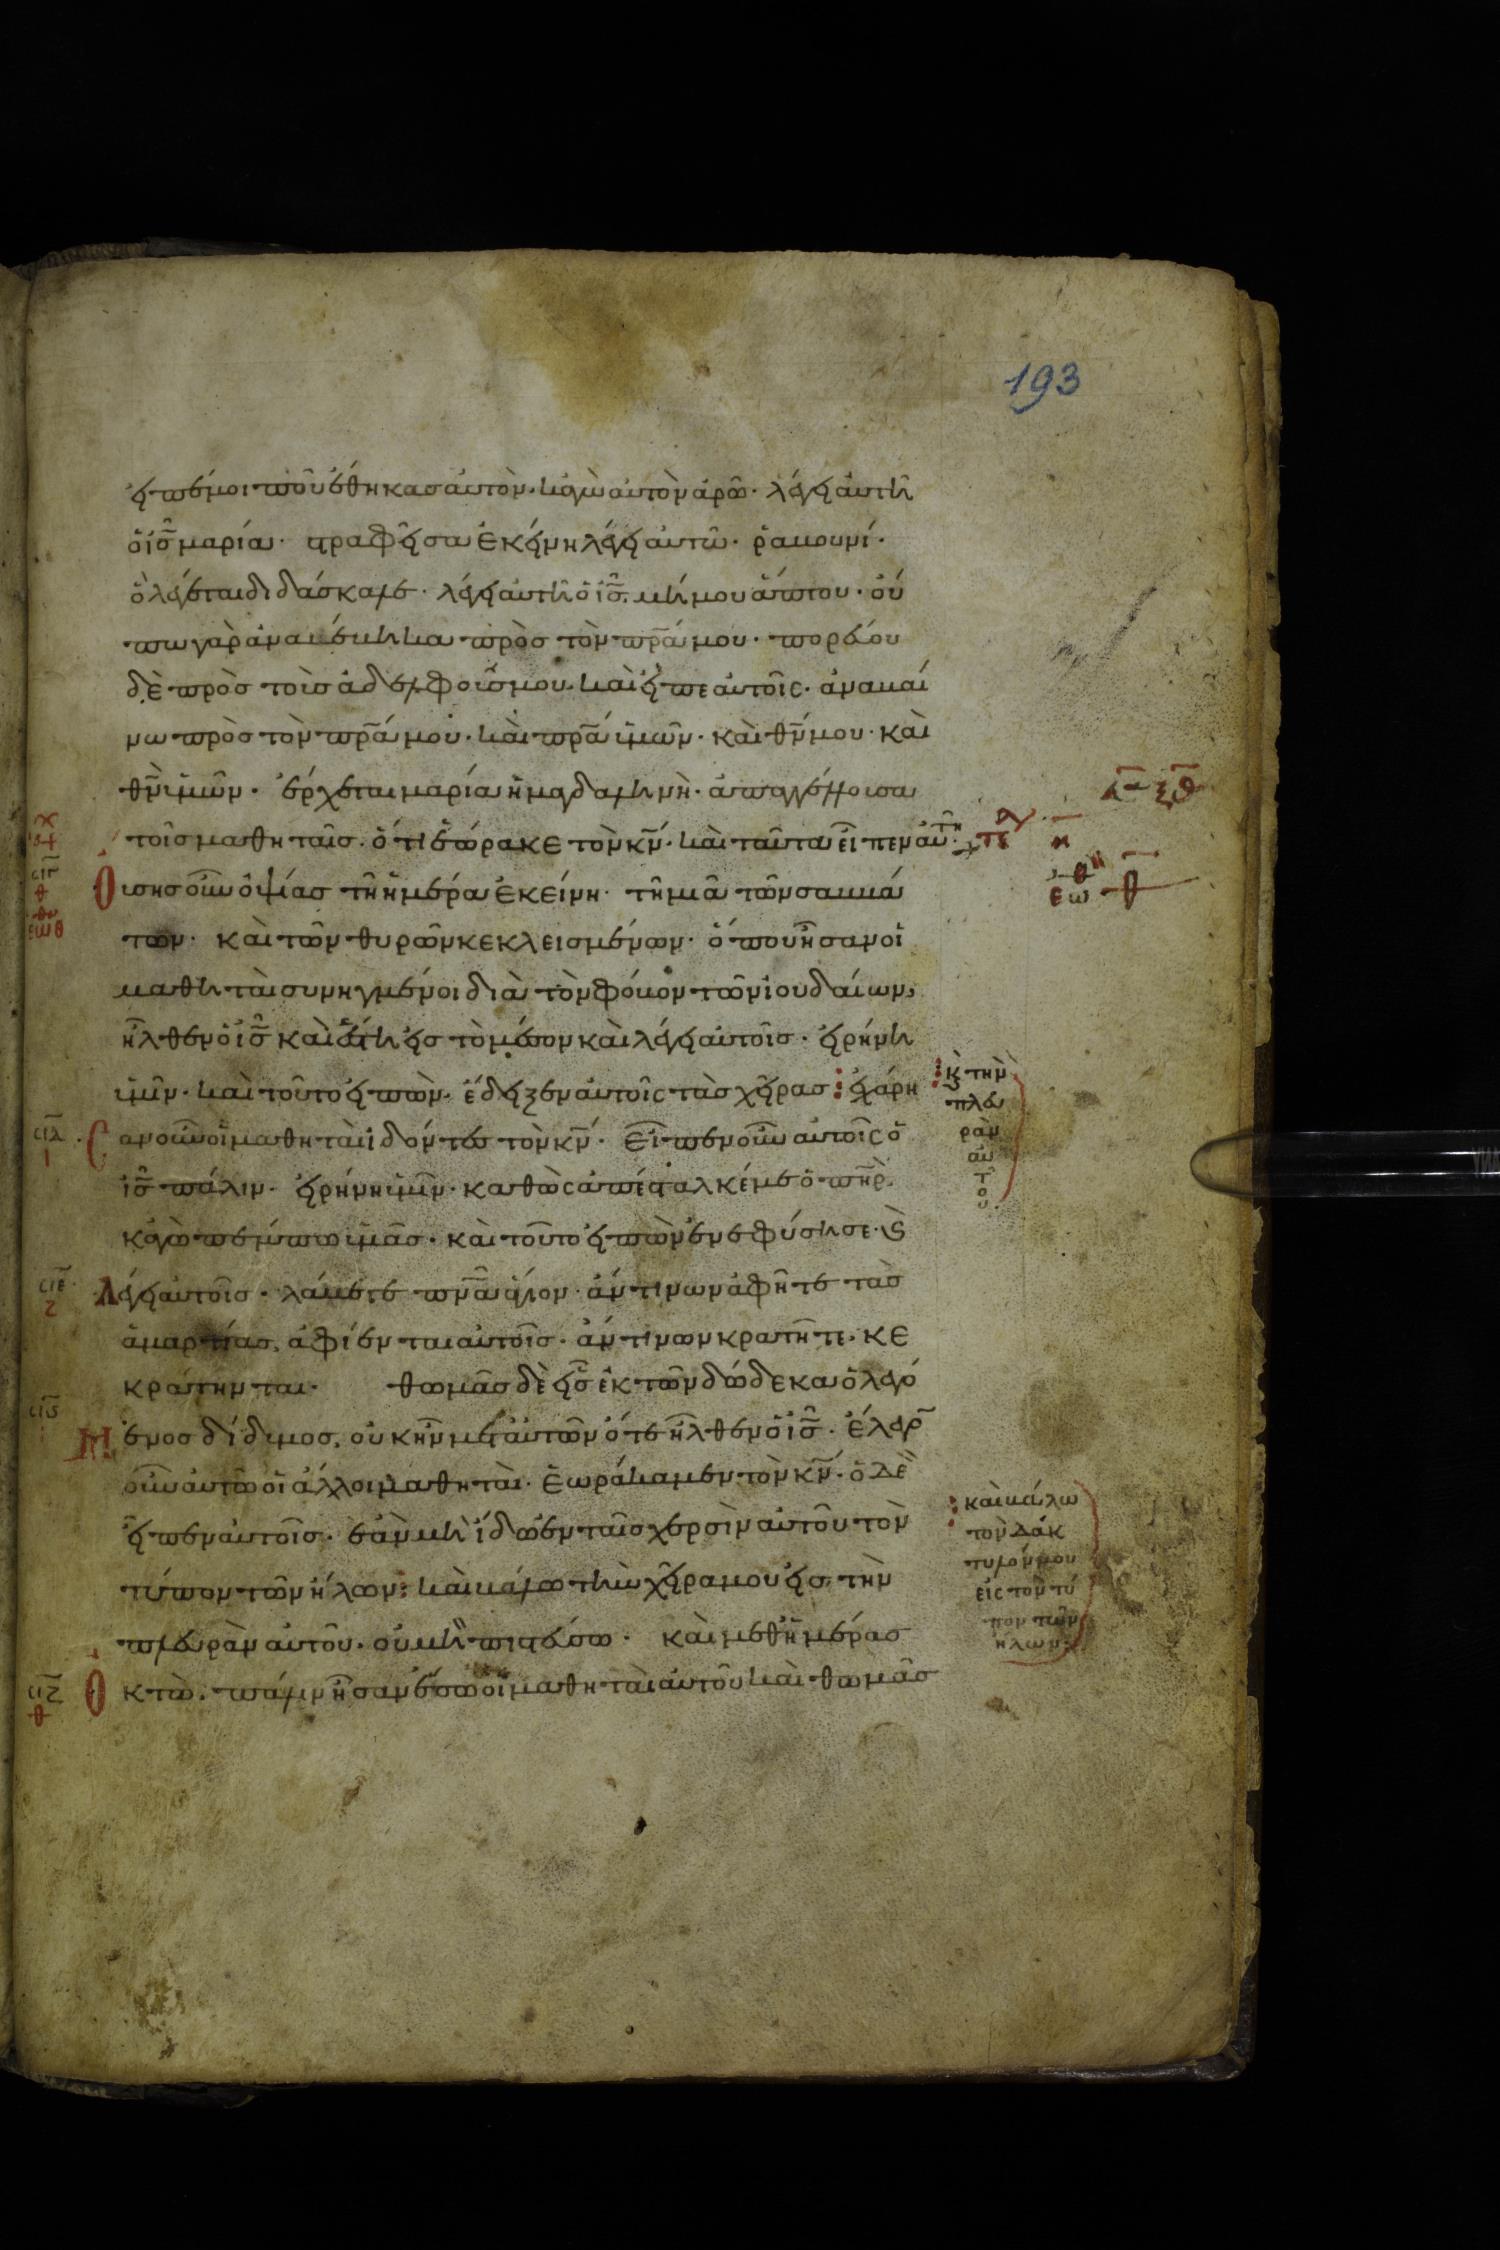 193
εἰπέ μοι ποῦ ἔθηκας αὐτὸν· κἀγὼ αὐτὸν ἀρῶ· λέγει αὐτῆ
ὁ ι̅ς̅ μαρία· στραφεῖσα ἐκείνη λέγει αὐτῶ· ῥαβουνί·
ὃ λέγεται διδάσκαλε· λέγει αὐτῆ ὁ ι̅ς̅. μή μου ἅπτου· οὔ
πω γὰρ ἀναβέβηκα πρὸς τὸν πρ̅α μου· πορεύου
δὲ πρὸς τοὺς ἀδελφούς μου· καὶ εἰπὲ αὐτοῖς· ἀναβαί
νω πρὸς τὸν πρ̅α μου· καὶ πρ̅α ὑμῶν· καὶ θν̅ μου· καὶ
θν̅ ὑμῶν· ἔρχεται μαρία ἡ μαγδαληνὴ· ἀπαγγέλλουσα
τοῖς μαθηταῖς· ὅτι ἑώρακε τὸν κν̅· καὶ ταῦτα εἶπεν αὐτῆ·
Οὔσης οὖν ὀψίας τῆ ἡμέρα ἐκείνη· τῆ μιᾶ τῶν σαββά
των· καὶ τῶν θυρῶν κεκλεισμένων· ὅπου ἦσαν οἱ
μαθηταὶ συνηγμένοι διὰ τὸν φόβον τῶν ἰουδαίων,
ἦλθεν ὁ ι̅ς̅ καὶ ἔστη εἰς τὸ μέσον καὶ λέγει αὐτοῖς· εἰρήνη
ὑμῖν· καὶ τοῦτο εἰπὼν· ἔδειξεν αὐτοῖς τὰς χεῖρας : ἐχάρη
: κ̀ τὴν
πλευ
ρὰν
αὐ
τ
ο
υ
σαν οὖν οἱ μαθηταὶ ἰδόντες τὸν κν̅· εἶπεν οὖν αὐτοῖς ὁ
ι̅ς̅ πάλιν· εἰρήνη ὑμῖν· καθὼς ἀπέσταλκέ με ὁ πη̅ρ.
κἀγὼ πέμπω ὑμᾶς· καὶ τοῦτο εἰπὼν ἐνεφύσησε· κ̀
Λέγει αὐτοῖς· λάβετε πν̅α ἅγιον· ἄν τινων ἀφῆτε τὰς
ἁμαρτίας, ἀφίενται αὐτοῖς· ἄν τινων κρατῆτε· κε
κράτηνται· θωμᾶς δὲ εἷς ἐκ τῶν δώδεκα ὁ λεγό
Μενος δίδιμος, οὐκ ἦν μετ' αὐτῶν ὅτε ἦλθεν ὁ ι̅ς̅· ἔλεγο̅
οὖν αὐτῶ οἱ ἄλλοι μαθηταὶ· ἑωράκαμεν τὸν κν̅· ὁ δὲ
εἶπεν αὐτοῖς· ἐὰν μὴ ἴδω ἐν ταῖς χερσὶν αὐτοῦ τὸν
τύπον τῶν ἥλων : καὶ βάλω τὴν χεῖρα μου εἰς τὴν
: καὶ βάλω
τὸν δάκ
τυλόν μου
εἰς τὸν τύ
πον τῶν
ἥλων :
πλευρὰν αὐτοῦ. οὐ μὴ πιστεύσω· καὶ μεθ' ἡμέρας
Οκτὼ. πάλιν ἦσαν ἔσω οἱ μαθηταὶ αὐτοῦ καὶ θωμᾶς